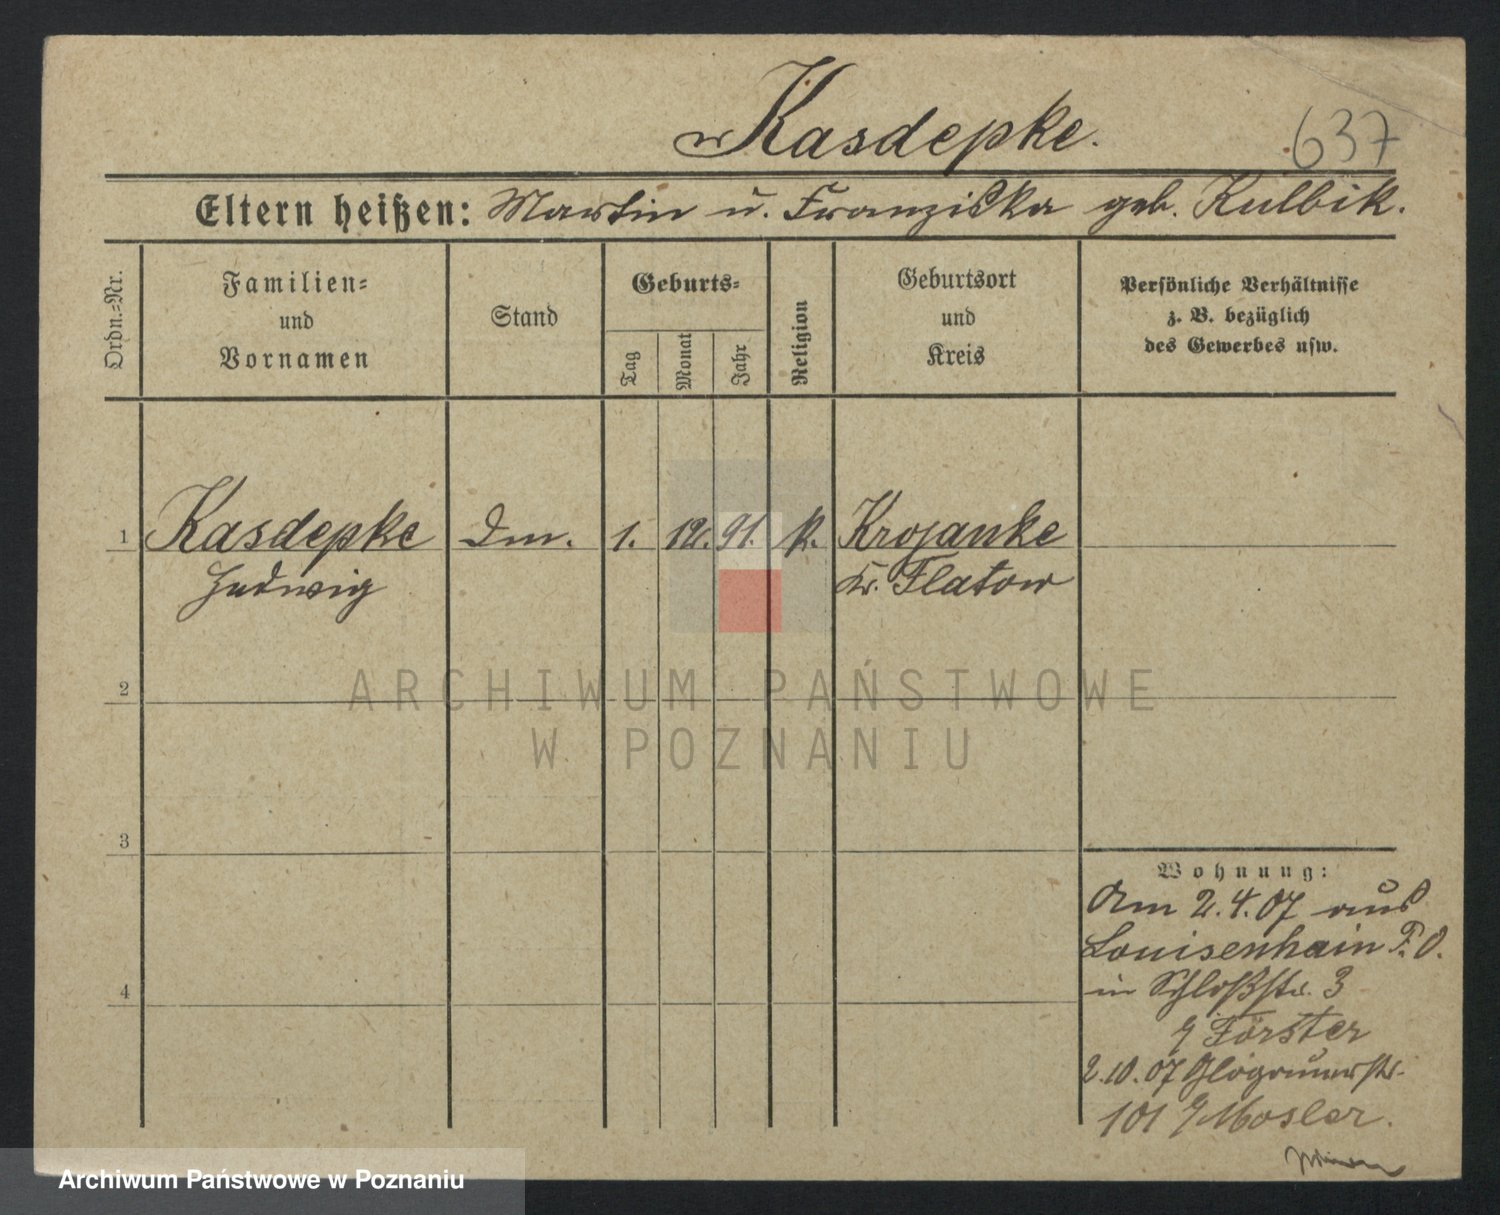 Kasdepke.
637
Eltern heißen: Martin u. Franziska geb. Kulbik.
Ordn.-Nr.
Familien-
und
Vornamen
Stand
Geburts-
Tag
Monat
Jahr
Religion
Geburtsort
und
Kreis
Persönliche Verhältnisse
z. B. bezüglich
des Gewerbes usw.
1 Kasdepke Dm. 1. 12. 91. k. Krojanke
Hedwig Kr. Flatow
2
ARCHIWUM PAŃSTWOWE
W POZNANIU
3
Wohnung:
Am 2.4.07 aus
Louisenhain P. O.
4
in Schloßstr. 3
Förster
2.10.07 Glogauerstr.
101 Mosler.
Archiwum Państwowe w Poznaniu